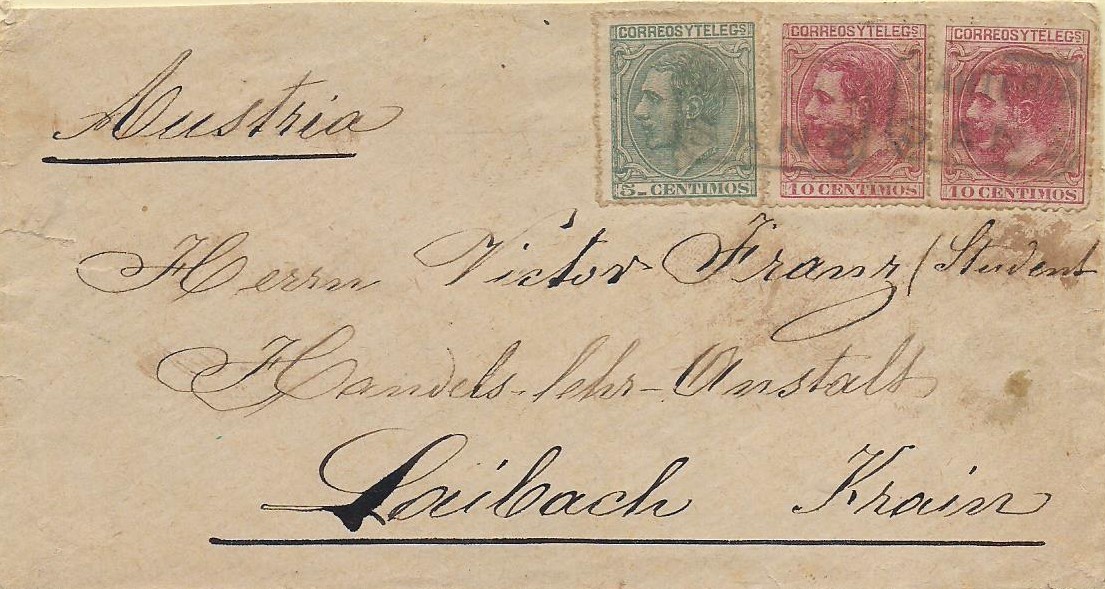 CORREOS Y TELEGS CORREOS Y TELEGS CORREOS Y TELEGS
5- CENTIMOS 10 CENTIMOS 10 CENTIMOS
Austria
Herrn Victor Franz (Student
Handels-lehr-Anstalt
Laibach Krain